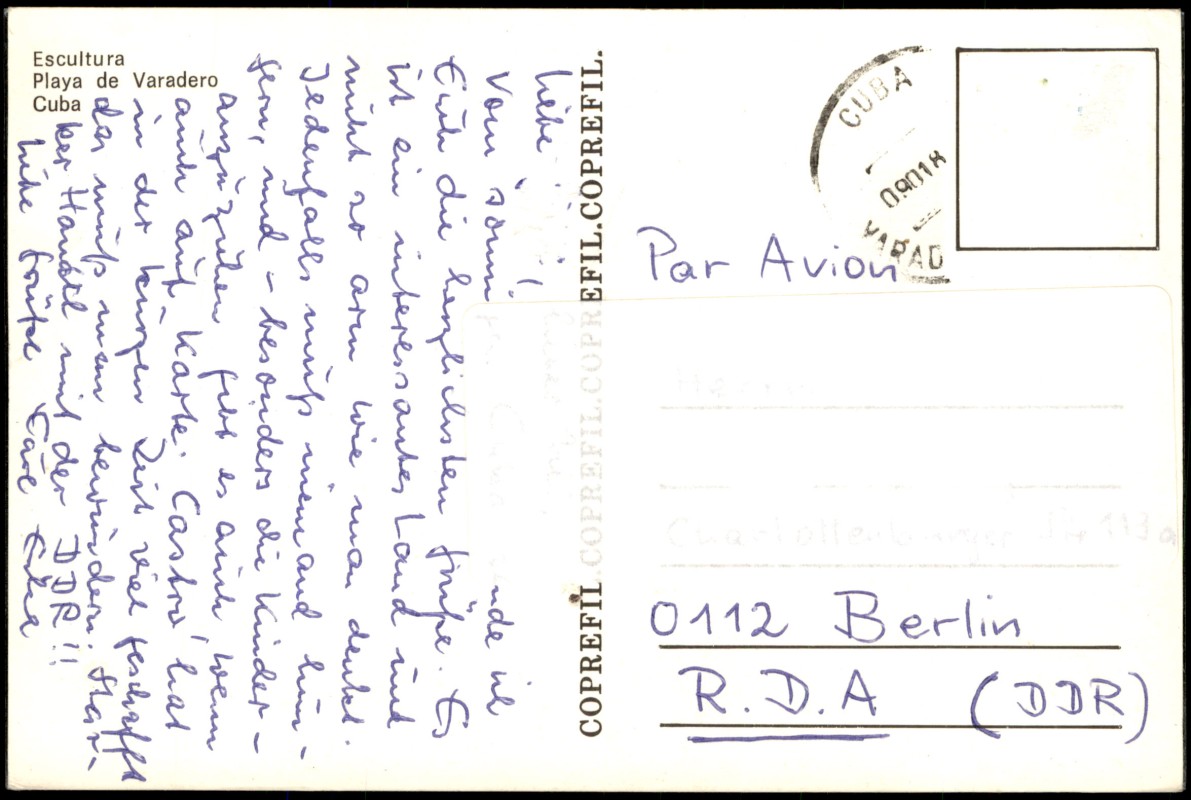 Escultura
Playa de Varadero
Cuba
Liebe
Vom
sende ich
Euch die herzlichsten Grüße. Es
ist ein interessantes Land und
nicht so arm wie man denkt.
Jedenfalls muß niemand hun-
gern, und - besonders die Kinder -
anzuziehen gibt es auch wenn
auch auf Karte. Castro hat
in der kurzen Zeit viel geschafft
das muß man bewundern. Star-
ker Handel mit der DDR!!
Liebe Grüße Eure
COPREFIL.COPREFIL.COPREFIL.COPREFIL.
CUBA
VARAD
Par Avion
Herrn
Charlottenburger Str 113a
0112 Berlin
R.D.A (DDR)